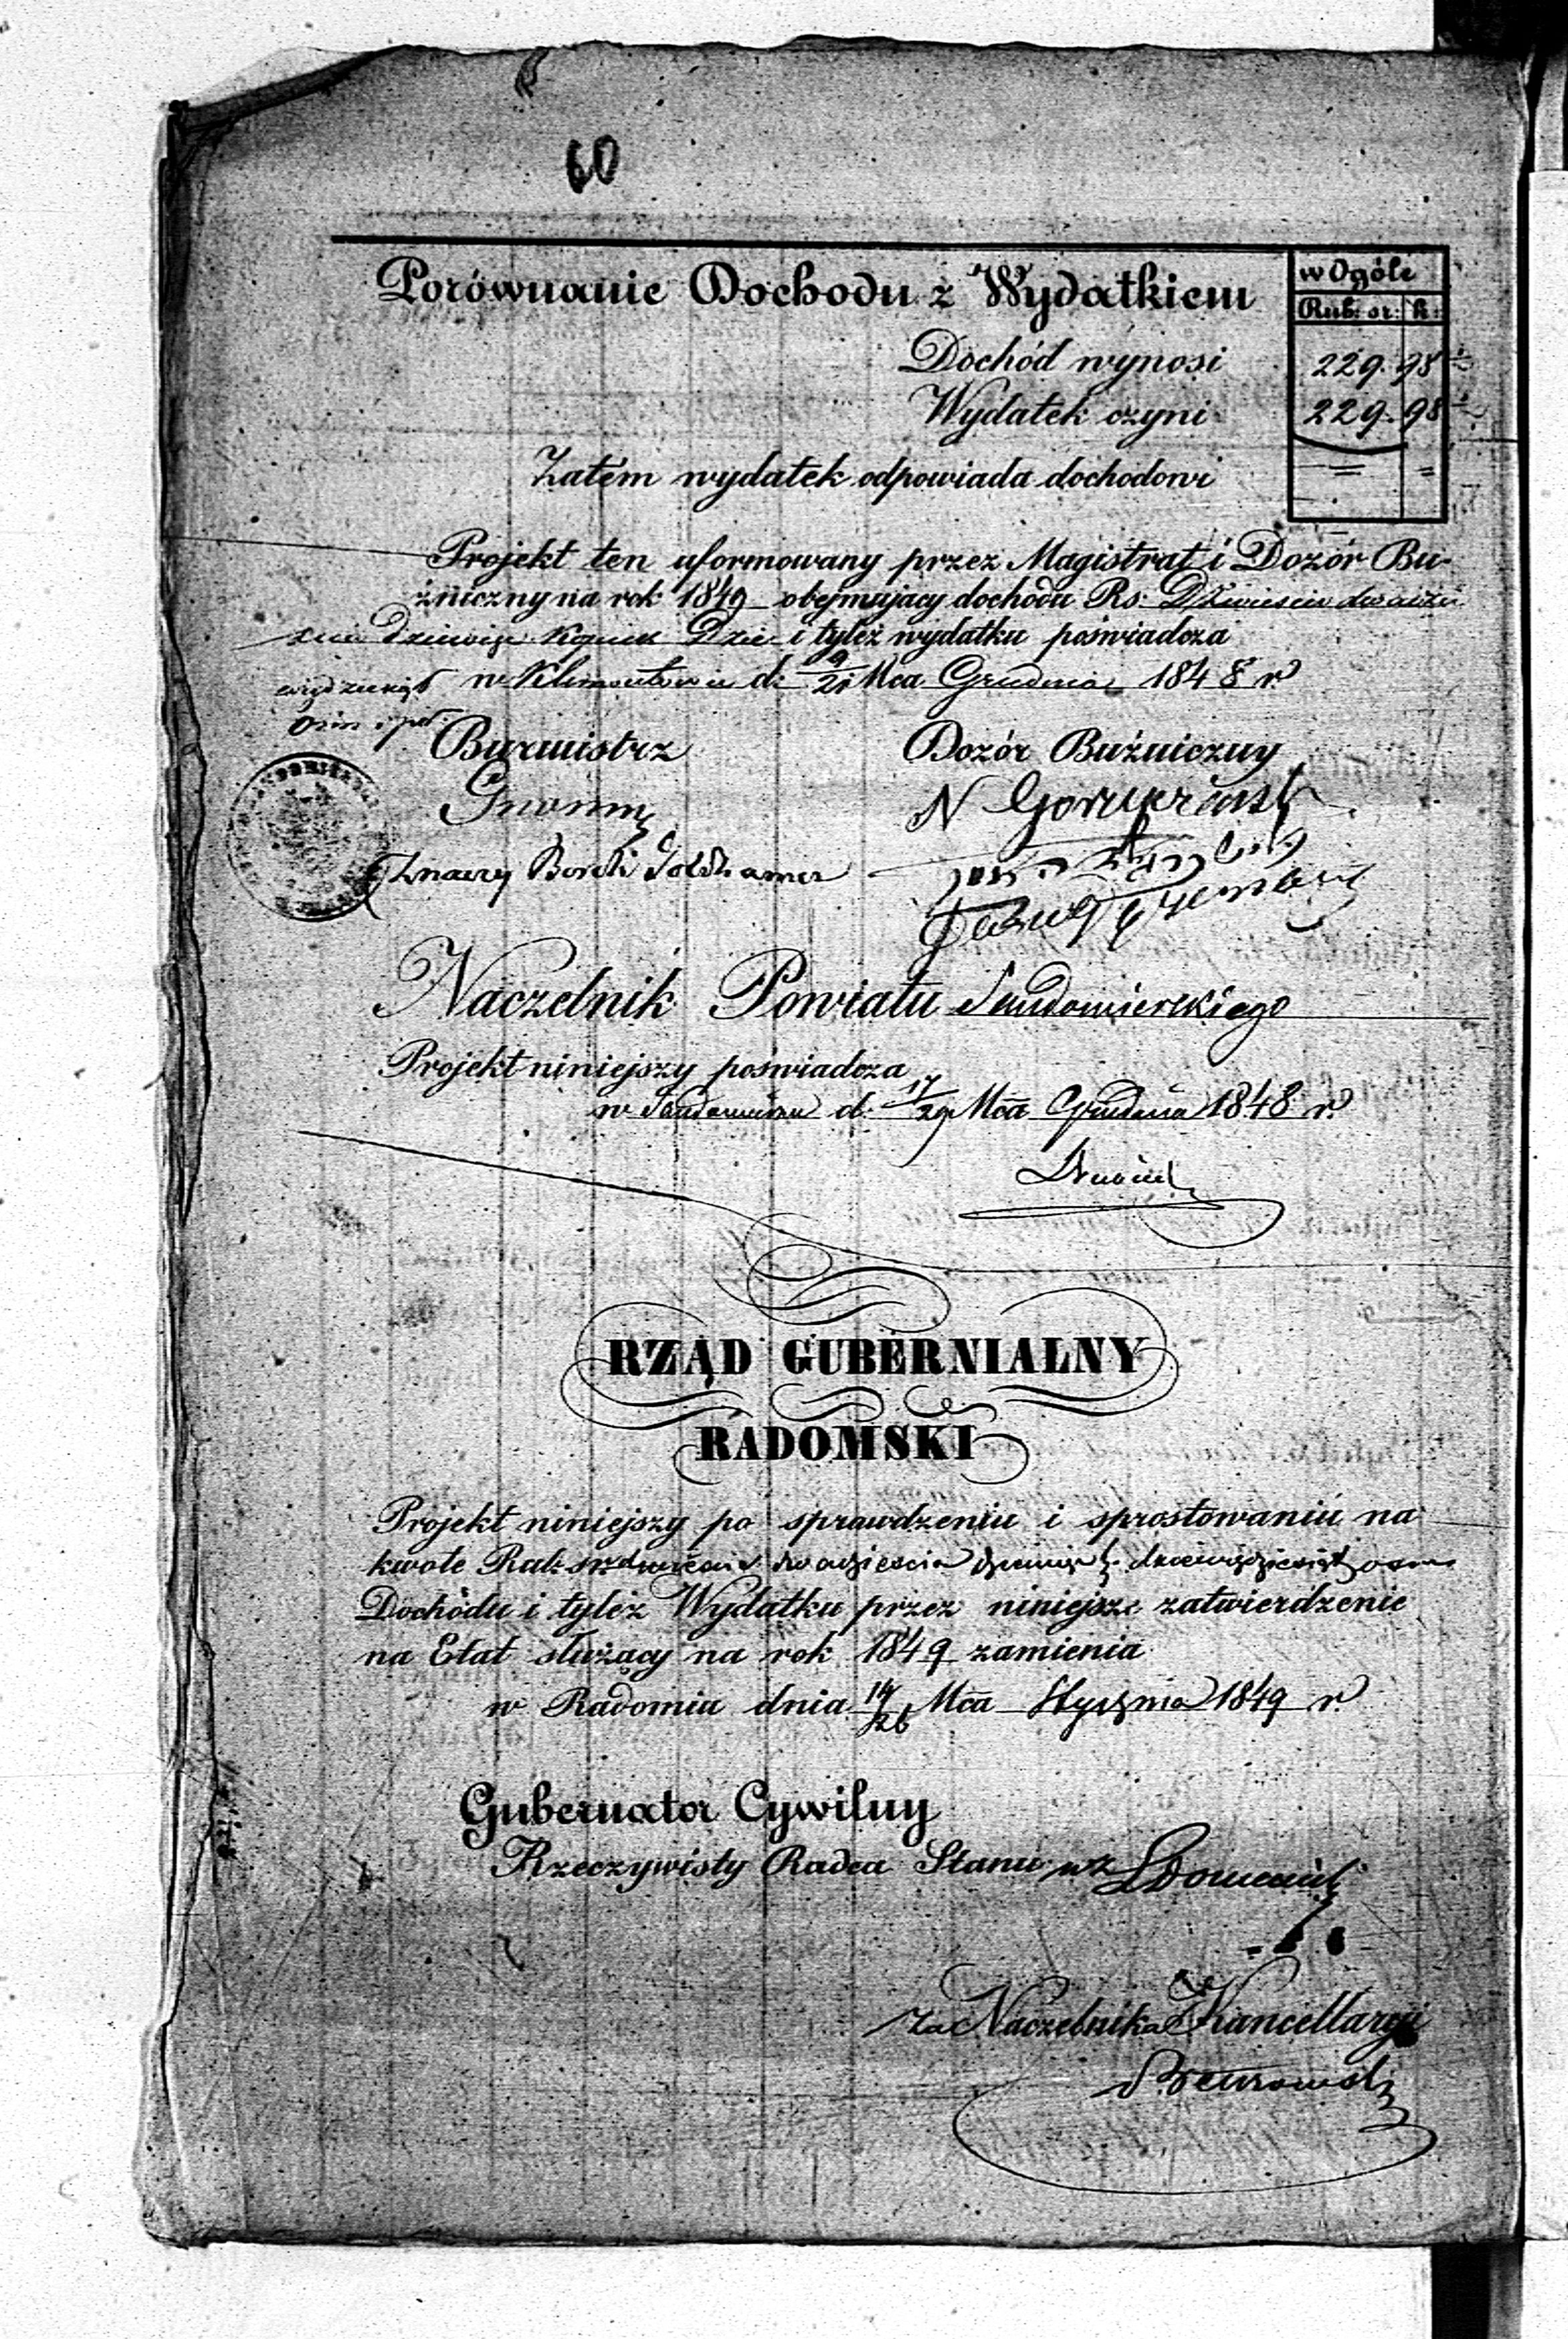 60
Porównanie Dochodu z Wydatkiem
w Ogóle
Rub: sr: k:
Dochód wynosi 229. 98 ½
Wydatek czyni 229. 98 ½
Zatem wydatek odpowiada dochodowi = =
Projekt ten uformowany przez Magistrat i Dozór Bu-
źniczny na rok 1849 obejmujący dochodu Rs: Dwieście dwadzie
ścia dziewięć kopiek Dzie- i tyleż wydatku poświadcza
więdziesiąt w Klimontowie d: 9/21 Mca Grudnia 1848 r.
osm i pół
Burmistrz Dozór Buźniczny
N
Znaczy Borek
Naczelnik Powiatu Sandomierskiego
Projekt niniejszy poświadcza
w Sandomierzu d: 17/29 Mca Grudnia 1848 r.
RZĄD GUBERNIALNY
RADOMSKI
Projekt niniejszy po sprawdzeniu i sprostowaniu na
kwotę Rub: sr: dwieście dwadzieścia dziewięć k. dziewięćdziesiąt osm
Dochodu i tyleż Wydatku przez niniejsze zatwierdzenie
na Etat służący na rok 1849 zamienia
w Radomiu dnia 14/26 Mca Stycznia 1849 r.
Gubernator Cywilny
Rzeczywisty Radca Stanu wz
za Naczelnika Kancellaryi